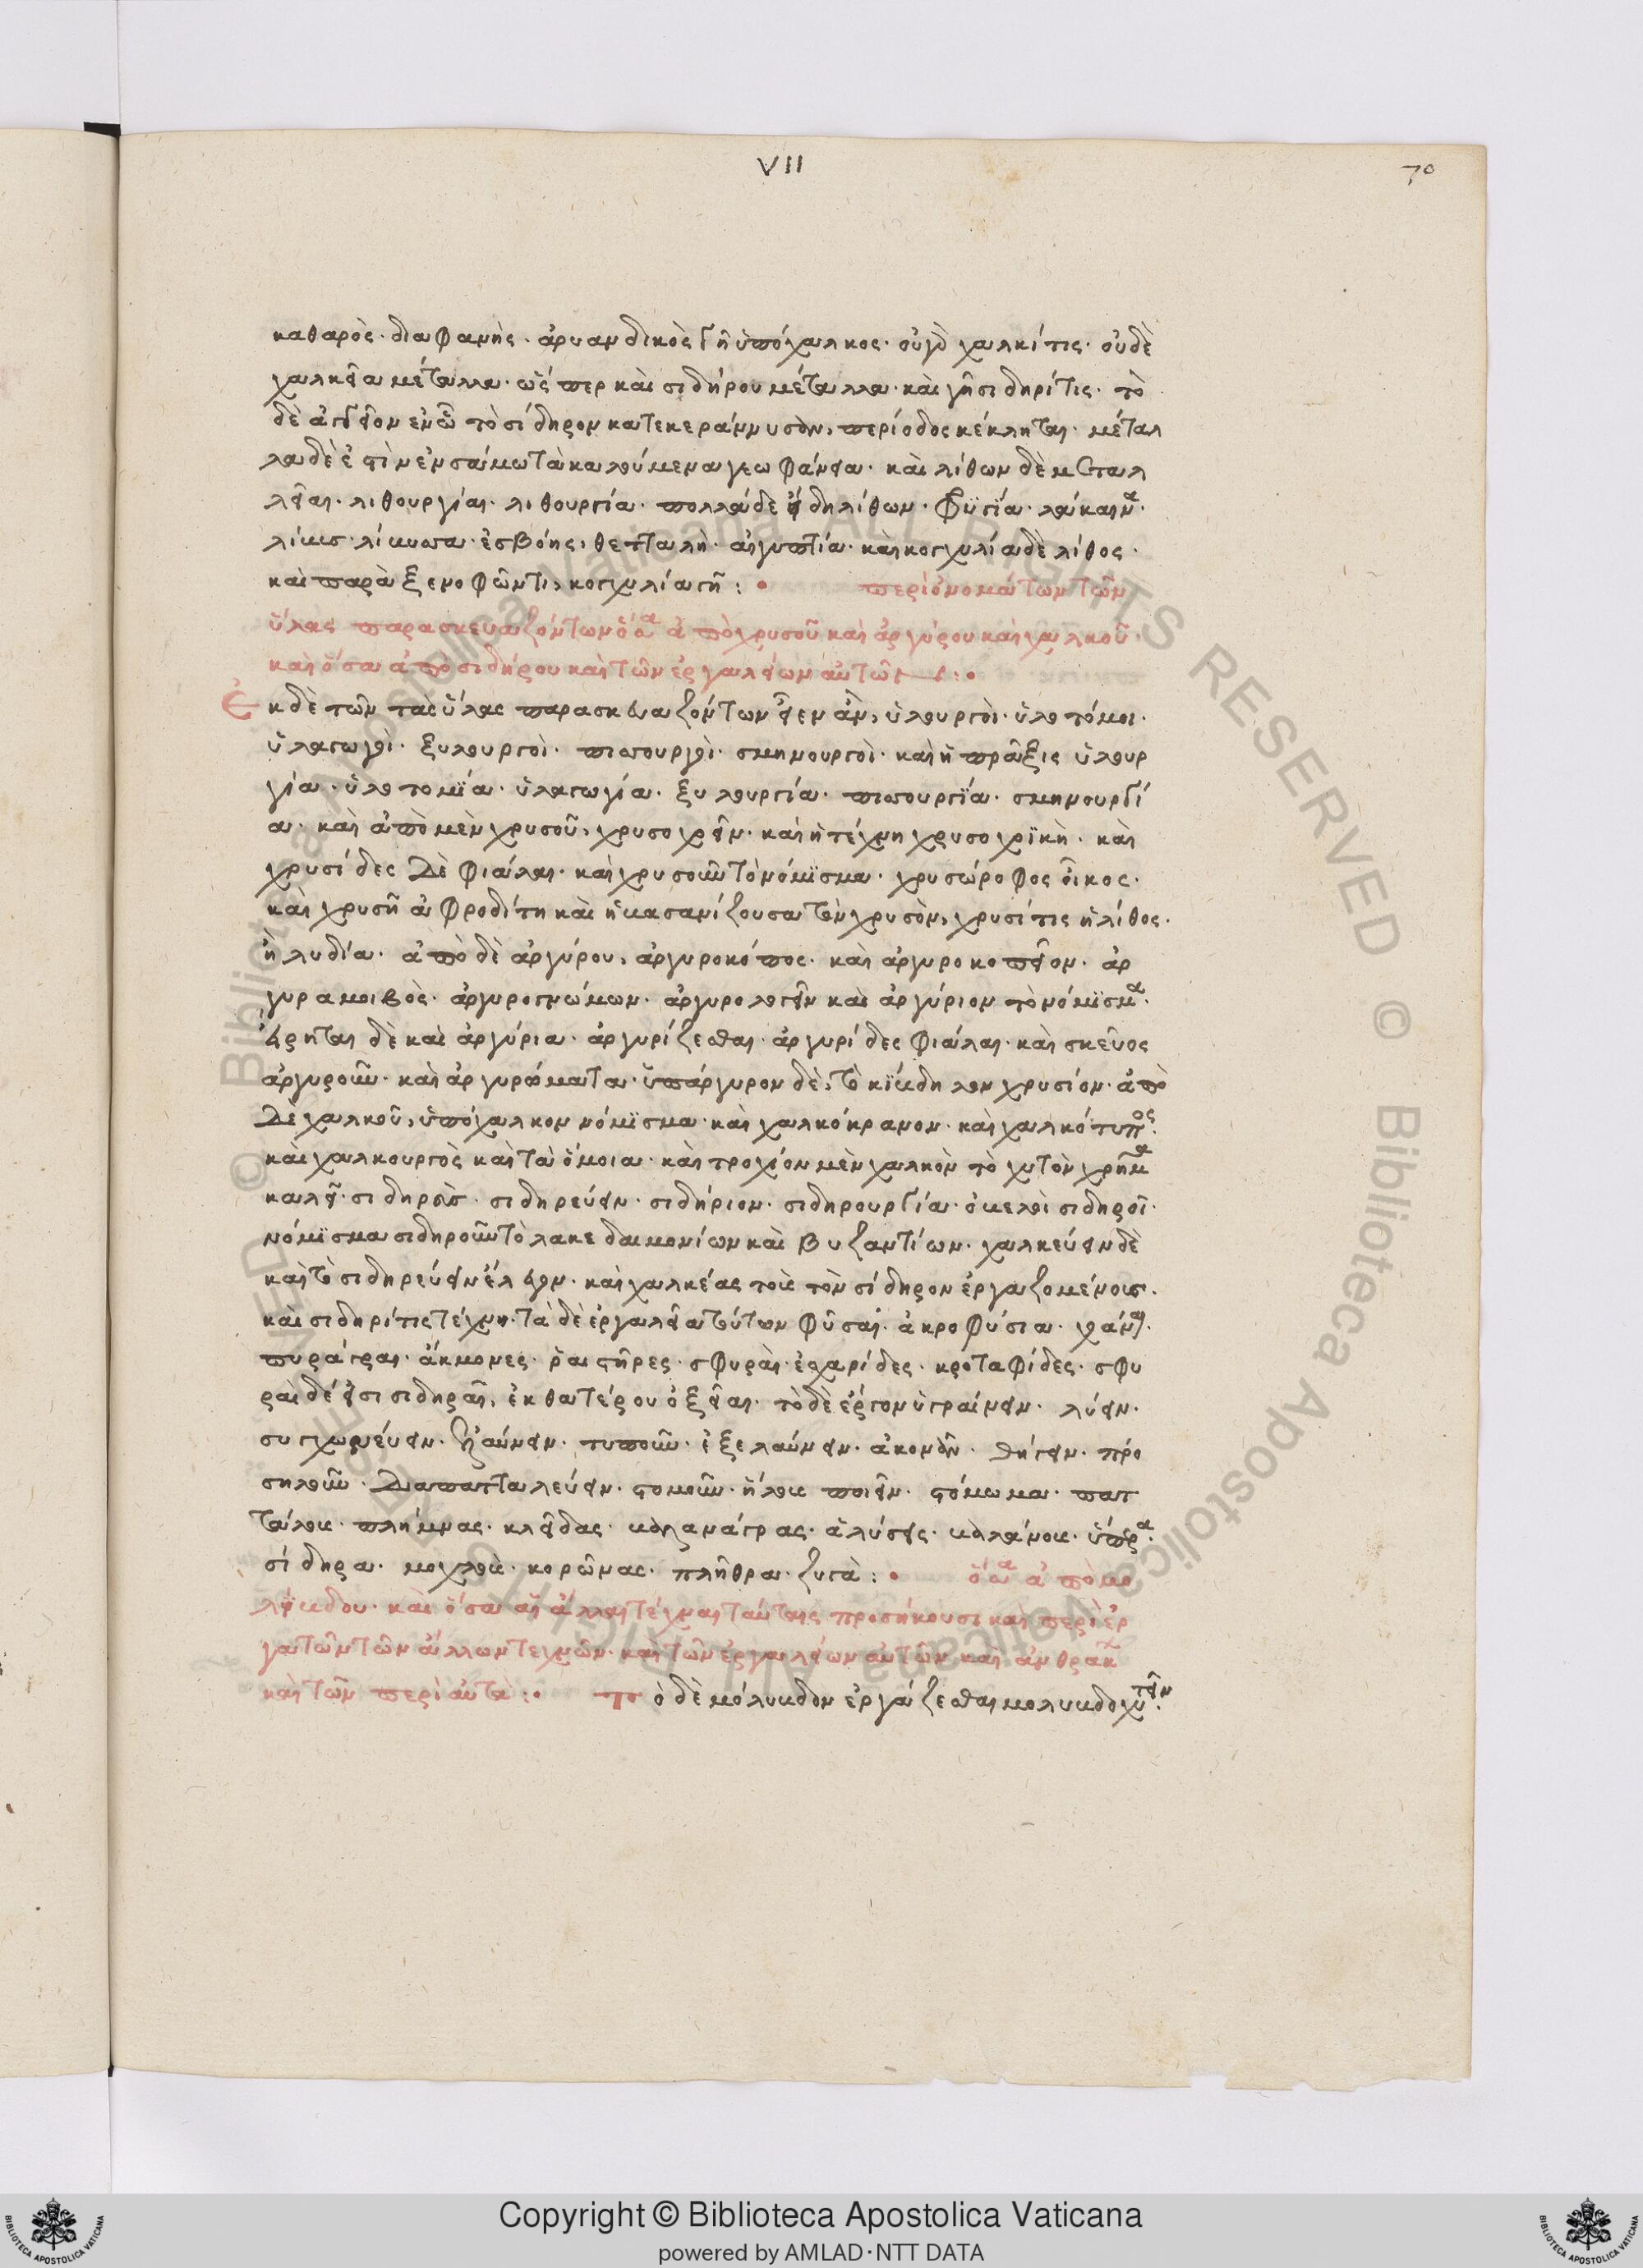 VII
70
καθαρὸς· διαφανὴς· ἀρυανδικὸς γῆ ὑπόχαλκος· οὐ γὰρ χαλκίτις· οὐδὲ
χαλκεῖα μέταλλα· ὥσπερ καὶ σιδήρου μέταλλα· καὶ γῆ σιδηρίτις· τὸ
δὲ ἀγγεῖον ἐν ᾧ τὸ σίδηρον κατεκεράννυσαν, περίοδος κέκληται· μέταλ
λα δὲ ἐστὶν ἐν σάμω τὰ καλούμενα γεωφάνεια· καὶ λίθων δὲ μεταλ
λεῖαι· λιθουργίαι· λιθουργία· πολλὰ δὲ εἴδη λίθων· φρυγία· λάκαινα·
λίβυσσα· ἐσβόης· θετταλὴ· αἰγυπτία· καὶ κογχυλία δὲ λίθος·
καὶ παρὰ ξενοφῶντι, κογχυλία γῆ:
περὶ ὀνομάτων τῶν
ὕλας παρασκευαζόντων ὅσα ἀπὸ χρυσοῦ καὶ ἀργύρου καὶ χαλκοῦ·
καὶ ὅσα ἀπὸ σιδήρου καὶ τῶν ἐργαλείων αὐτῶν:
Ἐκ δὲ τῶν τὰς ὕλας παρασκευαζόντων εἶεν ἂν, ὑλουργοὶ· ὑλοτόμοι·
ὑλαγωγοὶ· ξυλουργοὶ· πισσουργοὶ· σμηνουργοὶ· καὶ ἡ πρᾶξις ὑλουρ
γία· ὑλοτομία· ὑλαγωγία· ξυλουργία· πισσουργία· σμηνουργί
α· καὶ ἀπὸ μὲν χρυσοῦ, χρυσοχεῖν· καὶ ἡ τέχνη χρυσοχϊκὴ· καὶ
χρυσίδες δὲ φιάλαι· καὶ χρυσοῦν τὸ νόμϊσμα· χρυσώροφος οἶκος·
καὶ χρυσῆ ἀφροδίτη καὶ ἡ βασανίζουσα τὸν χρυσὸν, χρυσίτις ἡ λίθος·
ἡ λυδία· ἀπὸ δὲ ἀργύρου, ἀργυροκόπος· καὶ ἀργυροκοπεῖον· ἀρ
γυραμοιβὸς· ἀργυρογνώμων· ἀργυρολογεῖν καὶ ἀργύριον τὸ νόμϊσμα·
εἴρηται δὲ καὶ ἀργύρια· ἀργυρίζεσθαι· ἀργυρίδες φιάλαι· καὶ σκεῦος
ἀργυροῦν· καὶ ἀργυρώματα· ὑπάργυρον δὲ, τὸ κΐβδηλον χρυσίον· ἀπὸ
δὲ χαλκοῦ, ὑπόχαλκον νόμϊσμα· καὶ χαλκόκρανον· καὶ χαλκότυπος·
καὶ χαλκουργὸς καὶ τὰ ὅμοια· καὶ τροχίον μὲν χαλκὸν τὸ χυτὸν χρῆμα
καλεῖ· σιδηρεὺς· σιδηρεύειν· σιδήριον· σιδηρουργία· ὀβελοὶ σιδηροῖ·
νόμϊσμα σιδηροῦν τὸ λακεδαιμονίων καὶ βυζαντίων· χαλκεύειν δὲ
καὶ τὸ σιδηρεύειν ἔλεγον· καὶ χαλκέας τοὺς τὸν σίδηρον ἐργαζομένους·
καὶ σιδηρίτις τέχνη· τὰ δὲ ἐργαλεῖα τούτων φῦσαι· ἀκροφύσια· χάναι·
πυράγραι· ἄκμονες· ῥαιστῆρες· σφυραὶ· ἐσχαρίδες· κροταφίδες· σφυ
ραὶ δέ εἰσι σιδηραῖ, ἐκ θατέρου ὀξεῖαι· τὸ δὲ ἔργον ὑγραίνειν· λύειν·
συγχωνεύειν· ἐλαύνειν· τυποῦν· ἐξελαύνειν· ἀκονᾶν· θήγειν· πρὸ
σηλοῦν· διαπατταλεύειν· στομοῦν· ἥλους ποιεῖν· στόμωμα· πατ
τάλους· πλήμνας· κλεῖδας· βαλανάγρας· ἁλύσεις· βαλάνους· ὕπερα·
σίδηρα· μοχλοὺς· κορώνας· πλῆθρα· ζυγὰ:
ὅσα ἀπὸ μο
λύβδου· καὶ ὅσα αἱ ἄλλαι τέχναι ταύταις προσήκουσι καὶ περὶ ἐρ
γατῶν τῶν ἄλλων τεχνῶν· καὶ τῶν ἐργαλείων αὐτῶν καὶ ἀνθρακ
καὶ τῶν περὶ αὐτὰ: τὸ δὲ μόλυβδον ἐργάζεσθαι μολυβδοχοεῖν·
Copyright © Biblioteca Apostolica Vaticana
powered by AMLAD·NTT DATA